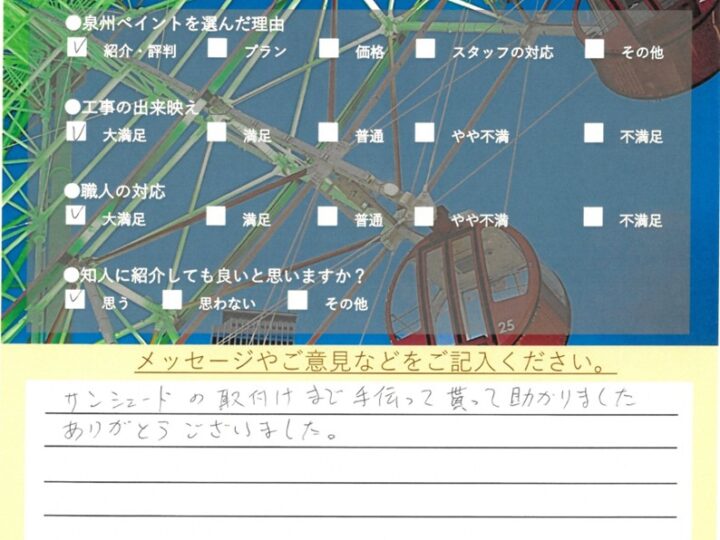 ●泉州ペイントを選んだ理由
紹介・評判 プラン 価格 スタッフの対応 その他
●工事の出来映え
大満足 満足 普通 やや不満 不満足
●職人の対応
大満足 満足 普通 やや不満 不満足
●知人に紹介しても良いと思いますか？
思う 思わない その他
25
メッセージやご意見などをご記入ください。
サンシェードの取付けまで手伝って貰って助かりました
ありがとうございました。